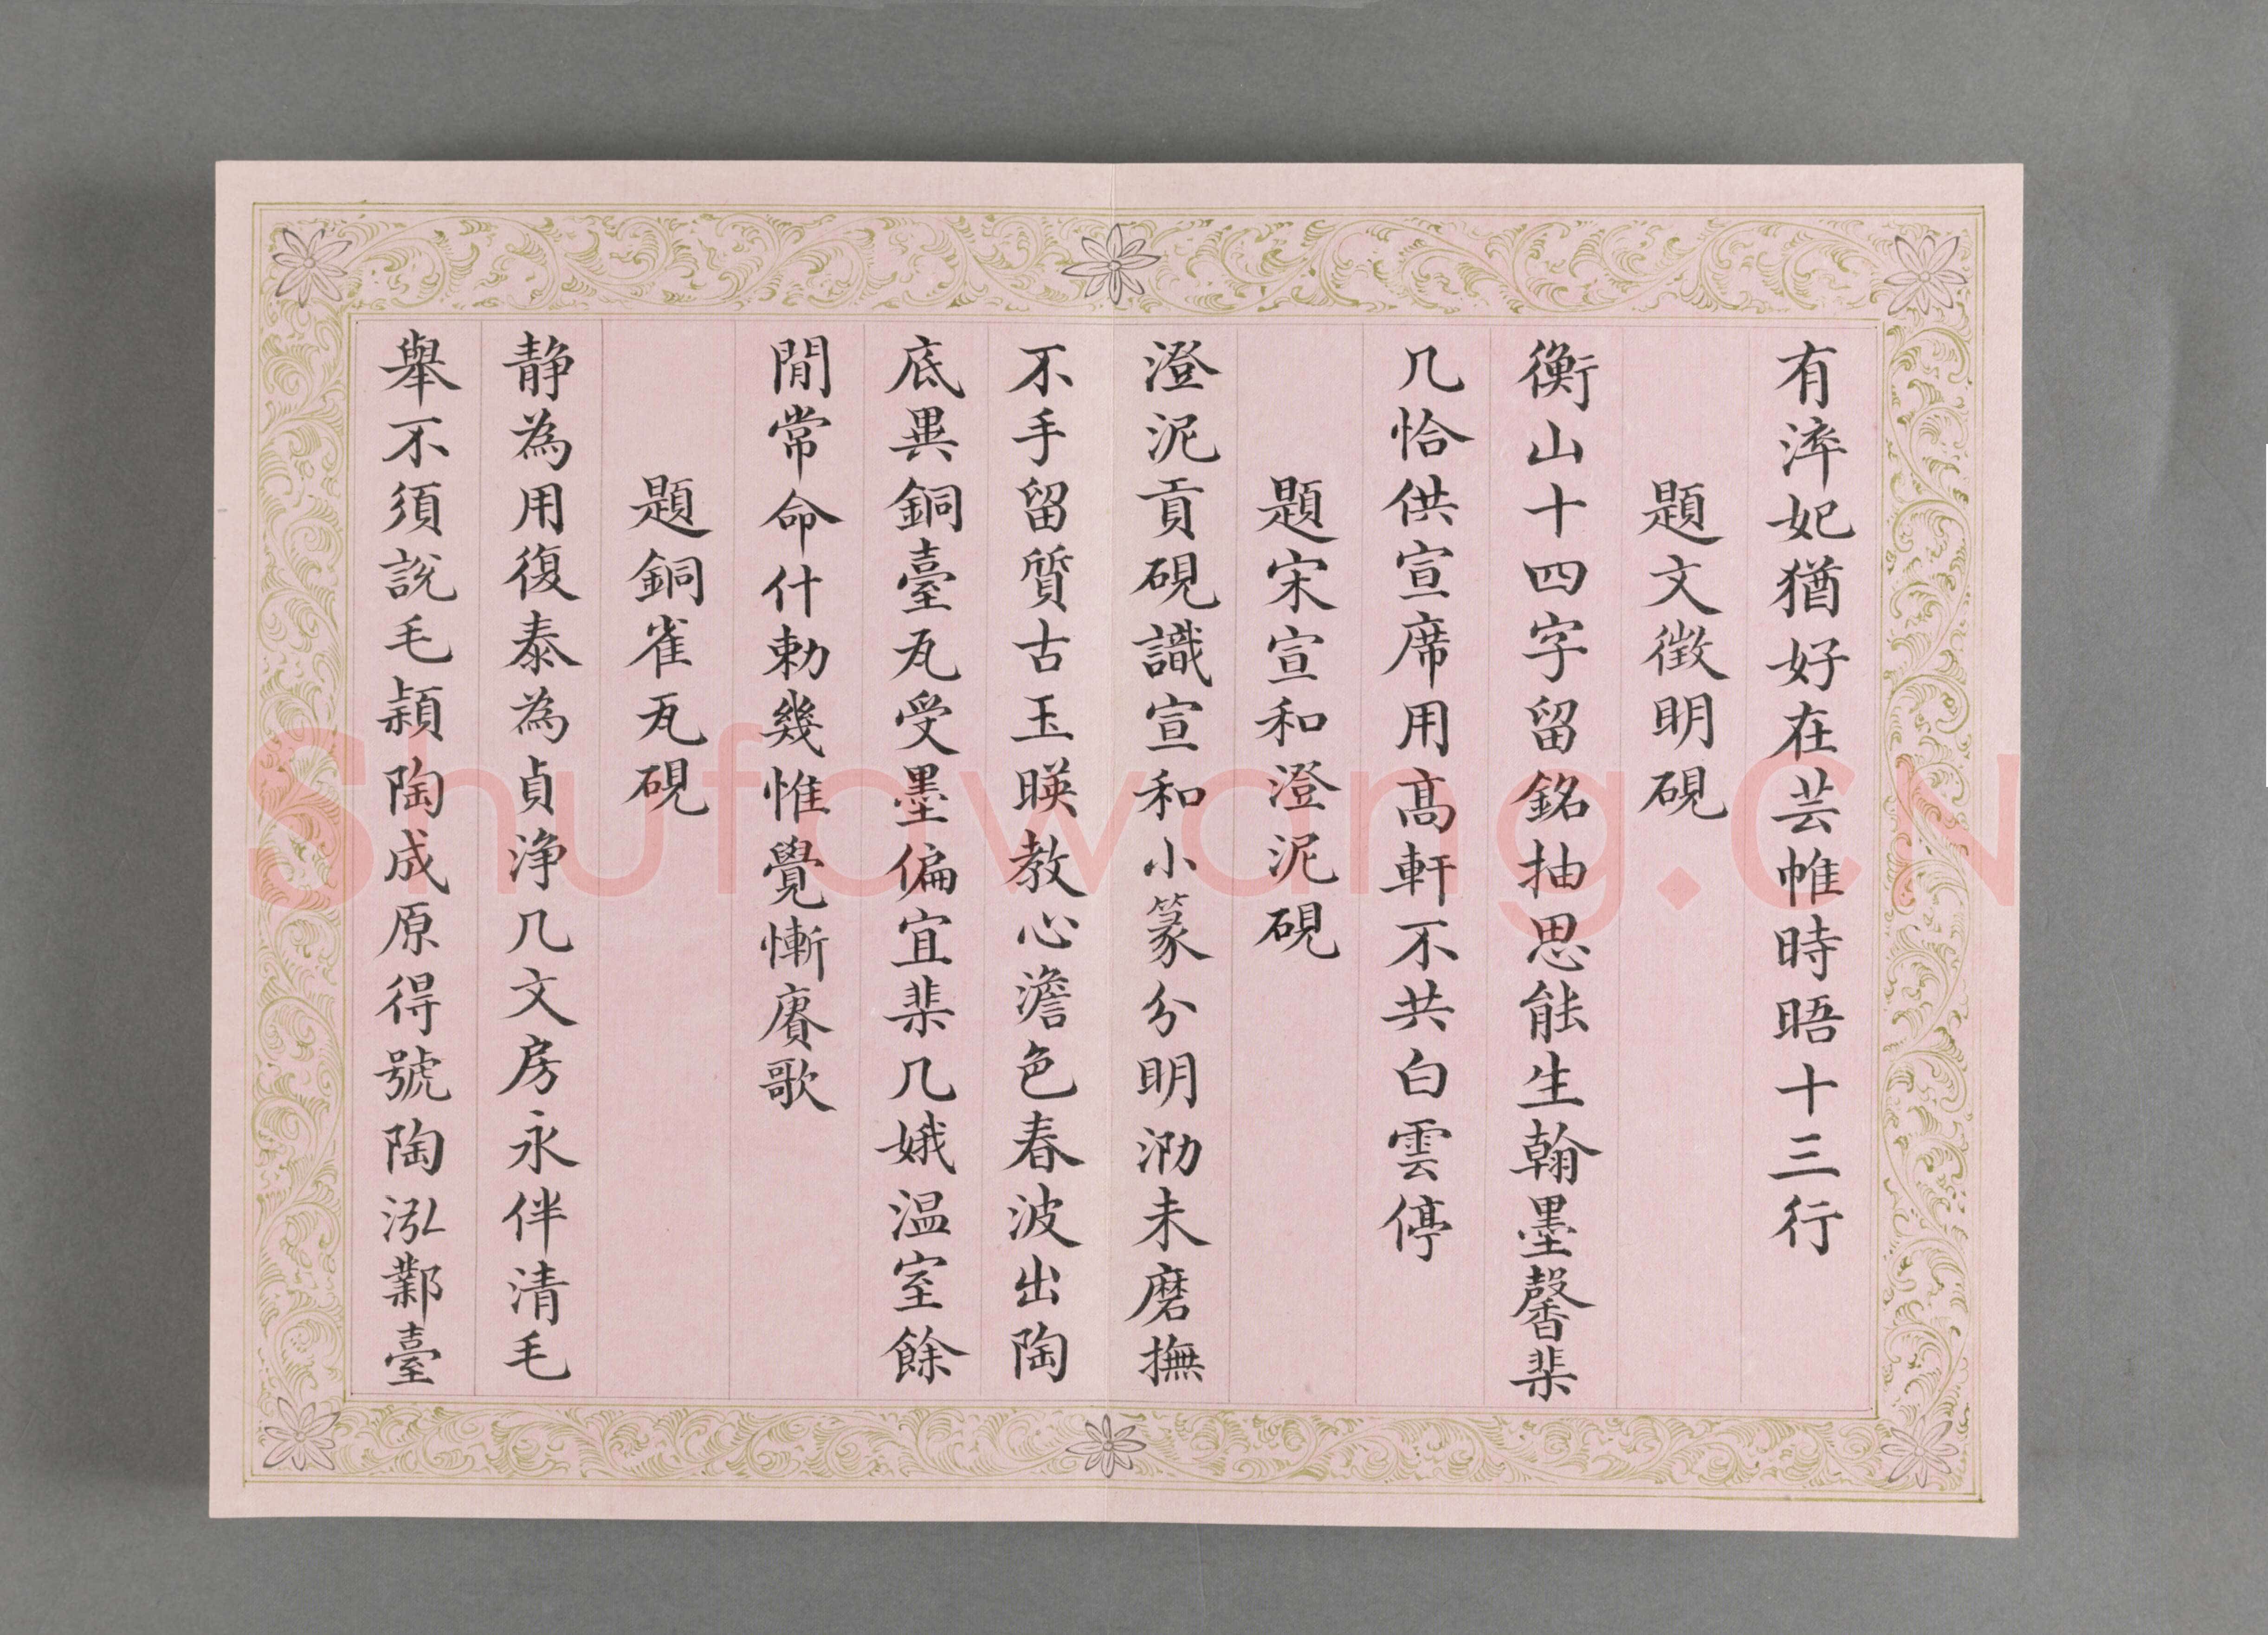 有淬妃猶好在芸帷時晤十三行
題文徵明硯
衡山十四字留銘抽思能生翰墨馨棐
几恰供宣席用高軒不共白雲停
題宋宣和澄泥硯
澄泥貢硯識宣和小篆分明泐未磨撫
不手留質古玉暎教心澹色春波出陶
底異銅臺瓦受墨偏宜棐几娥温室餘
閒常命什勅幾惟覺慚賡歌
題銅雀瓦硯
静為用復泰為貞浄几文房永伴清毛
舉不須說毛穎陶成原得號陶泓鄴臺
Shufawang.CN